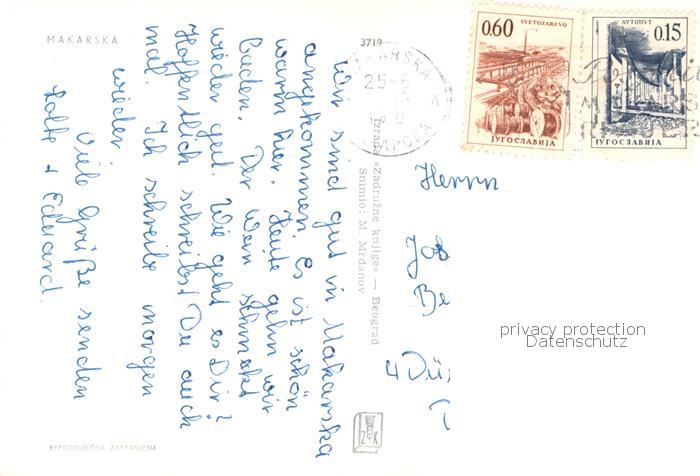 MAKARSKA
3719
0.60
SVETOZAREVO
JУГОСЛАВИЈА
АУТОПУТ
0.15
JУГОСЛАВИЈА
MAKARSKA
25-8
Wir sind gut in Makarska
angekommen. Es ist schön
warm hier. Heute gehn wir
baden. Der Wein schmekt
wieder gut. Wie geht es Dir?
Hoffentlich schreibst Du auch
mal. Ich schreibe morgen
wieder.
Viele Grüße senden
Lotte + Eduard.
Izrada »Zadružne knjige« — Beograd
Snimio: M. Mrdanov
Herrn
Job
Be
4 Dü
privacy protection
Datenschutz
ZK
REPRODUKCIJA ZABRANJENA